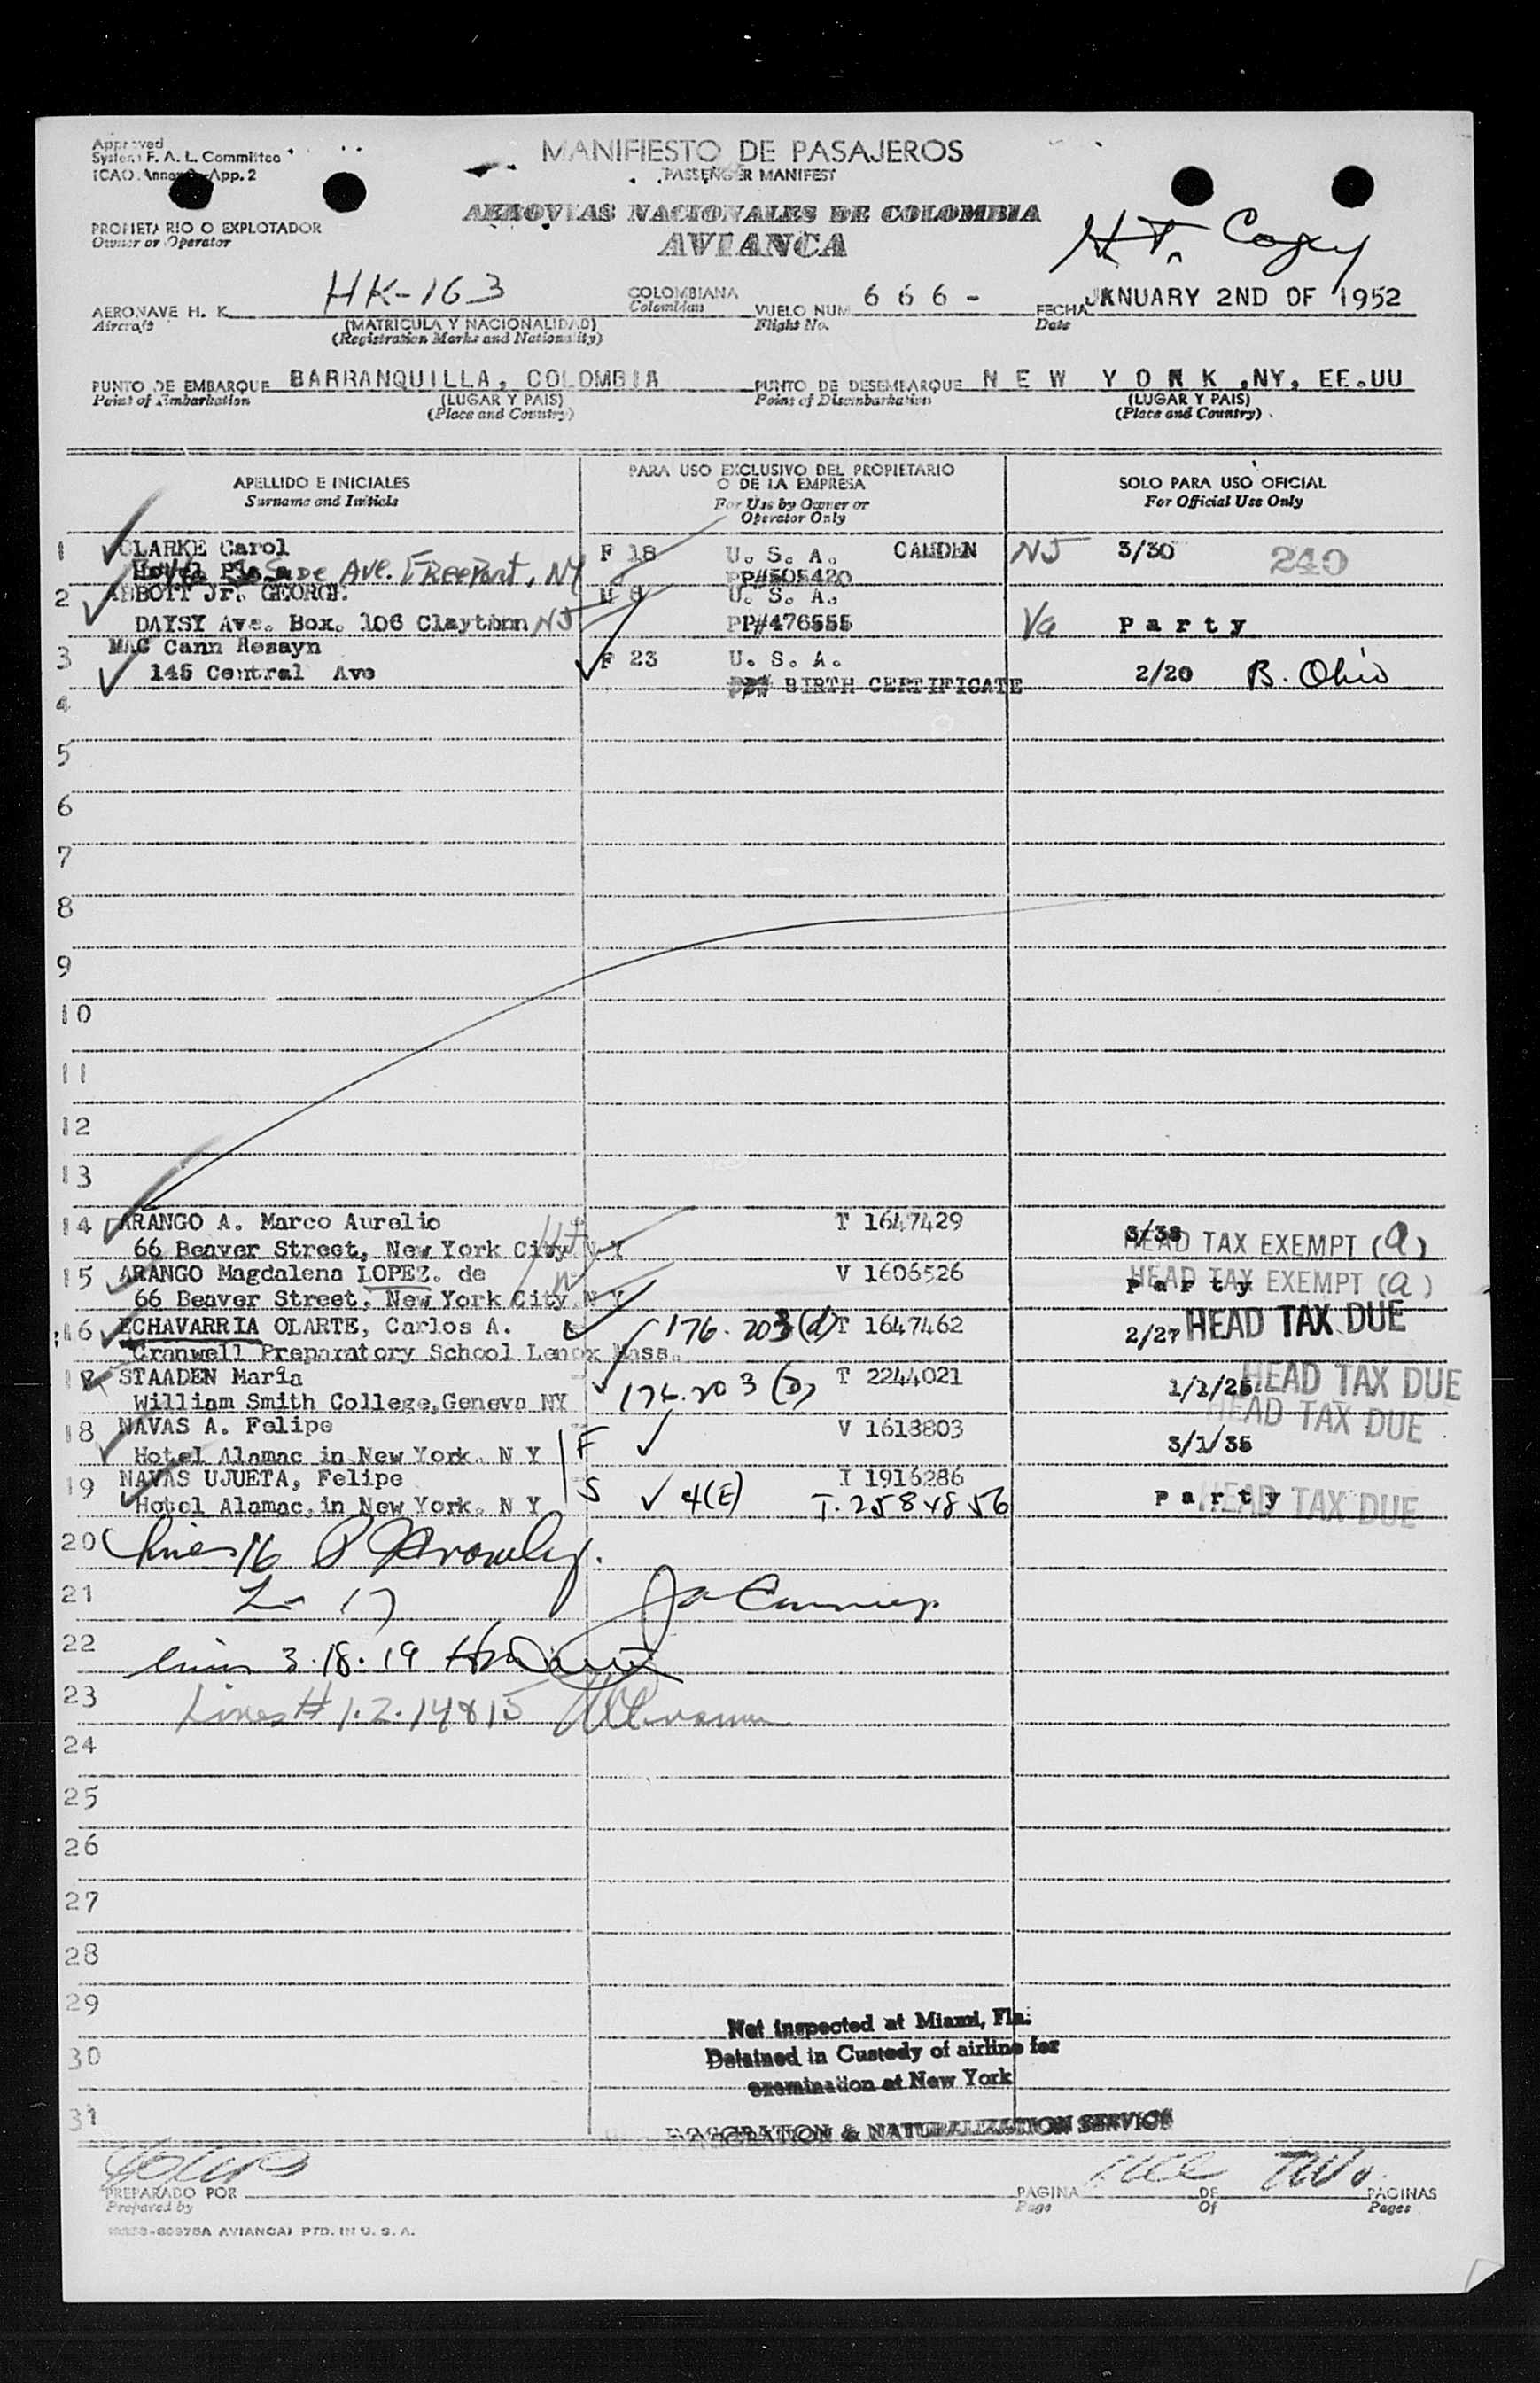 Approved
System F. A. L. Committee
ICAO. Annex App. 2
MANIFIESTO DE PASAJEROS
PASSENGER MANIFEST
AEROVIAS NACIONALES DE COLOMBIA
AVIANCA
PROPIETARIO O EXPLOTADOR
Owner or Operator
H.T. Copy
AERONAVE H. K. HK-163 COLOMBIANA VUELO NUM 6 6 6 - FECHA JANUARY 2ND OF 1952
Aircraft (MATRICULA Y NACIONALIDAD) Colombian Flight No. Date
(Registration Marks and Nationality)
PUNTO DE EMBARQUE BARRANQUILLA, COLOMBIA PUNTO DE DESEMBARQUE N E W Y O R K ,NY. EE.UU
Point of Embarkation (LUGAR Y PAIS) Point of Disembarkation (LUGAR Y PAIS)
(Place and Country) (Place and Country)
APELLIDO E INICIALES PARA USO EXCLUSIVO DEL PROPIETARIO SOLO PARA USO OFICIAL
O DE LA EMPRESA
Surname and Initials For Use by Owner or For Official Use Only
Operator Only
1 CLARKE Carol F 18 U. S. A. CAMDEN NJ 3/30 240
Ave. Freeport, NY PP#505420
2 ABBOTT Jr. GEORGE. M 8 U. S. A.
DAYSY Ave. Box. 106 Claytonn NJ PP#476555 Va P a r t y
3 MAC Cann Rosayn F 23 U. S. A.
145 Central Ave BIRTH CERTIFICATE 2/20 B. Ohio
4
5
6
7
8
9
10
11
12
13
14 ARANGO A. Marco Aurelio T 1647429 3/38
66 Beaver Street, New York City N Y HEAD TAX EXEMPT (a)
15 ARANGO Magdalena LOPEZ. de V 1606526 P a r t y HEAD TAX EXEMPT (a)
66 Beaver Street, New York City N Y
16 ECHAVARRIA OLARTE, Carlos A. 176.203(d) T 1647462 2/27 HEAD TAX DUE
Cranwell Preparatory School Lenox Mass.
17 STAADEN María 176.203 T 2244021 HEAD TAX DUE
William Smith College,Geneva NY 1/1/25
18 NAVAS A. Felipe F V 1618803 HEAD TAX DUE
Hotel Alamac in New York. N Y 3/1/35
19 NAVAS UJUETA, Felipe S 4(E) I 1916286 P a r t y HEAD TAX DUE
Hotel Alamac,in New York. N Y T.2584856
20 Lines 16
21 L- 17
22 lines 3.18.19
23 Lines # 1.2.14&15
24
25
26
27
28
29
Not inspected at Miami, Fla.
30 Detained in Custody of airline for
examination at New York
31
IMMIGRATION & NATURALIZATION SERVICE
PREPARADO POR PAGINA DE Two PAGINAS
Prepared by Page Of Pages
AVIANCA) PTD. IN U. S. A.